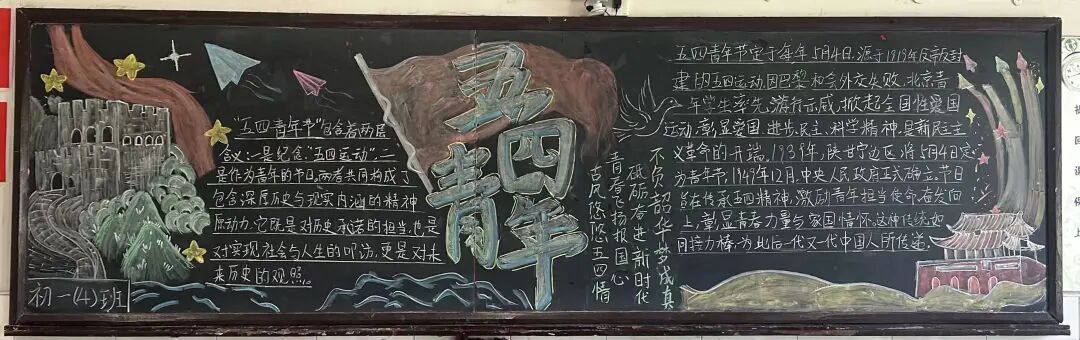 "五四青年节"包含着两层
含义:一是纪念"五四运动",二
是作为青年的节日,两者共同构成了
包含深厚历史与现实内涵的精神
原动力.它既是对历史承诺的担当,也是
对实现社会与人生的叩访,更是对未
来历史的观照。
初一(4)班
五四
青年
不负韶华梦成真
砥砺奋进新时代
青春飞扬报国心
古风悠悠五四情
五四青年节定于每年5月4日,源于1919年反帝反封
建的五四运动,因巴黎和会外交失败,北京青
年学生率先游行示威,掀起全国性爱国
运动,彰显爱国、进步、民主、科学精神,是新民主主
义革命的开端。1939年,陕甘宁边区将5月4日定
为青年节,1949年12月,中央人民政府正式确立。节日
旨在传承五四精神,激励青年担当使命、奋发向
上,彰显青春力量与家国情怀,这种传统如
同接力棒,为此后一代又一代中国人所传递。